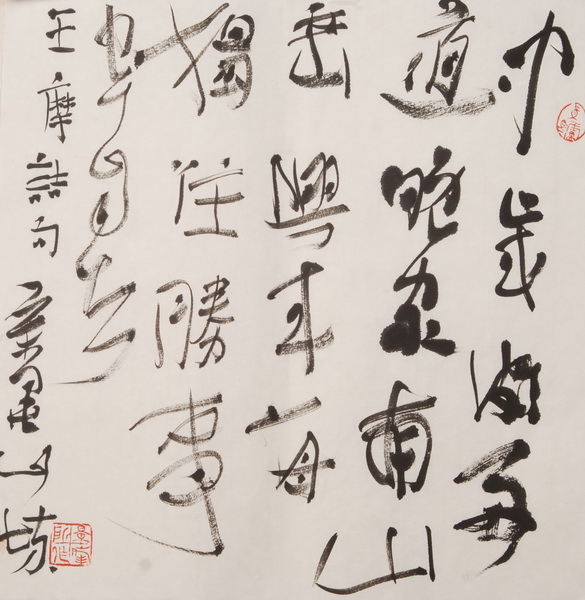 中歲頗好
道晚家南山
垂興来每
獨往勝事
空自知
王摩詰句